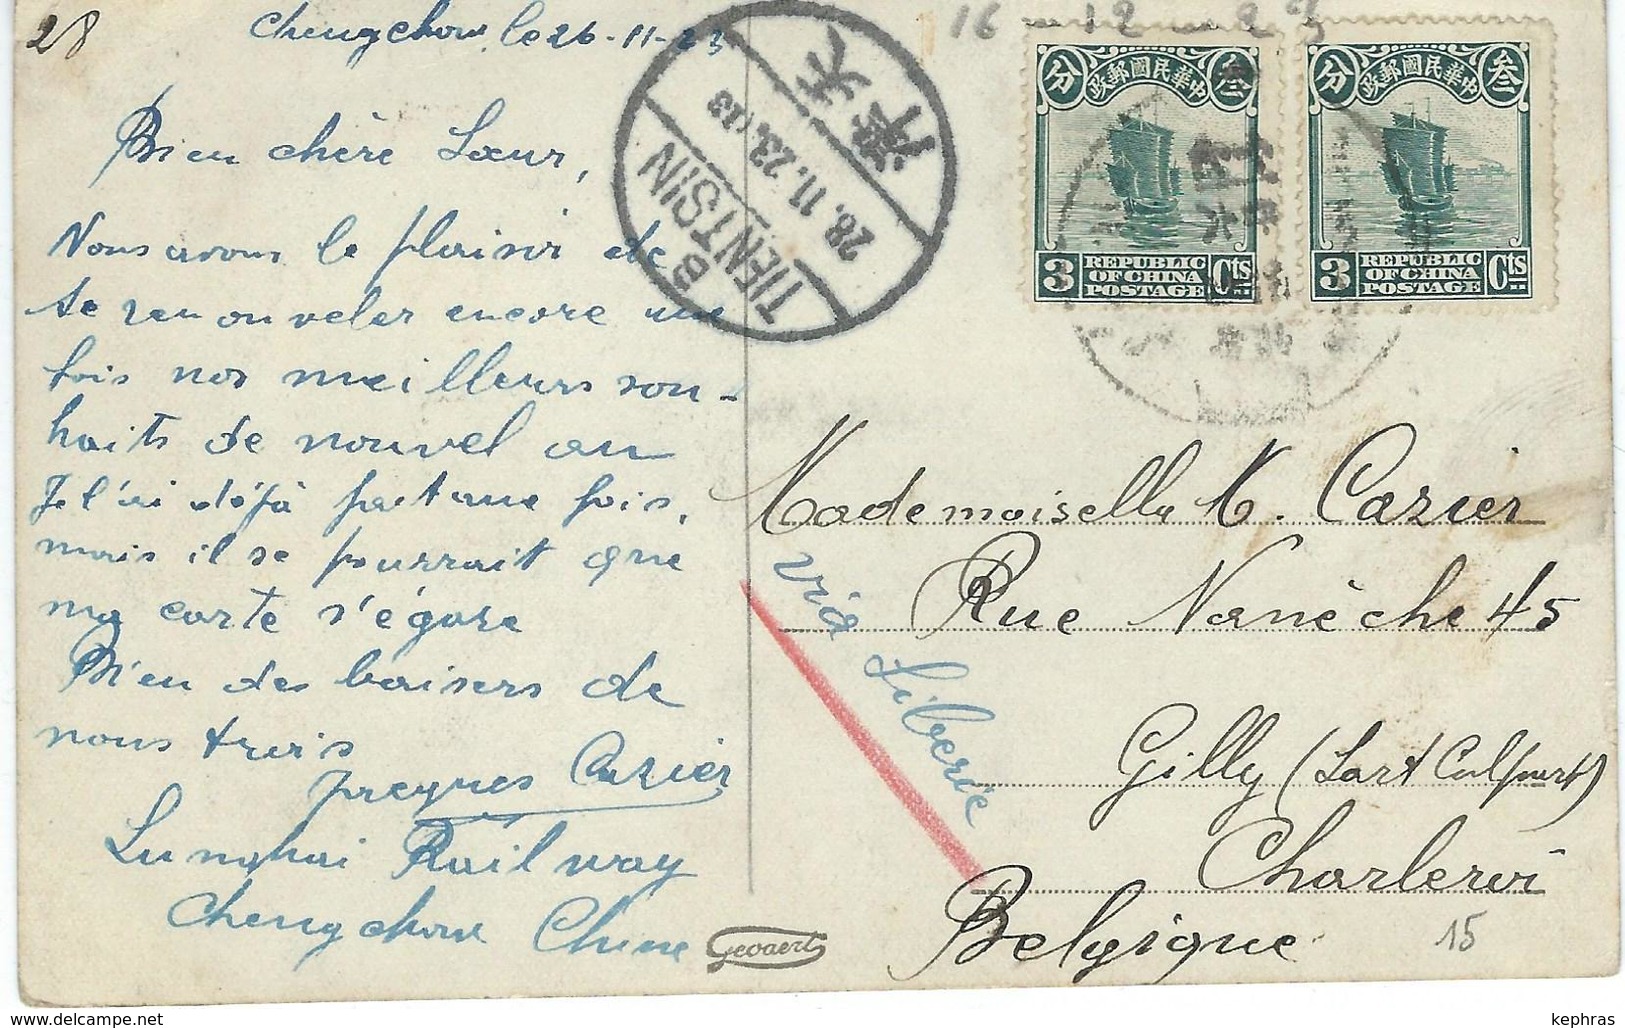 28
Chengchow, le 26-11-23
16-12-23
Bien chère Sœur,
Nous avons le plaisir de
te renouveler encore une
fois nos meilleurs sou-
haits de nouvel an
Je l'ai déjà fait une fois,
mais il se pourrait que
ma carte s'égare
Bien des baisers de
nous trois
Jacques Cazier
Lunghai Railway
Chengchow Chine
天津
28.11.23
TIENTSIN
B
分 政郵國民華中 叁
3 REPUBLIC OF CHINA POSTAGE 3 Cts
分 政郵國民華中 叁
3 REPUBLIC OF CHINA POSTAGE 3 Cts
via Siberie
Mademoiselle M. Cazier
Rue Nanèche 45
Gilly (Sart Culpart)
Charleroi
Belgique
15
Gevaert
www.delcampe.net
kephras